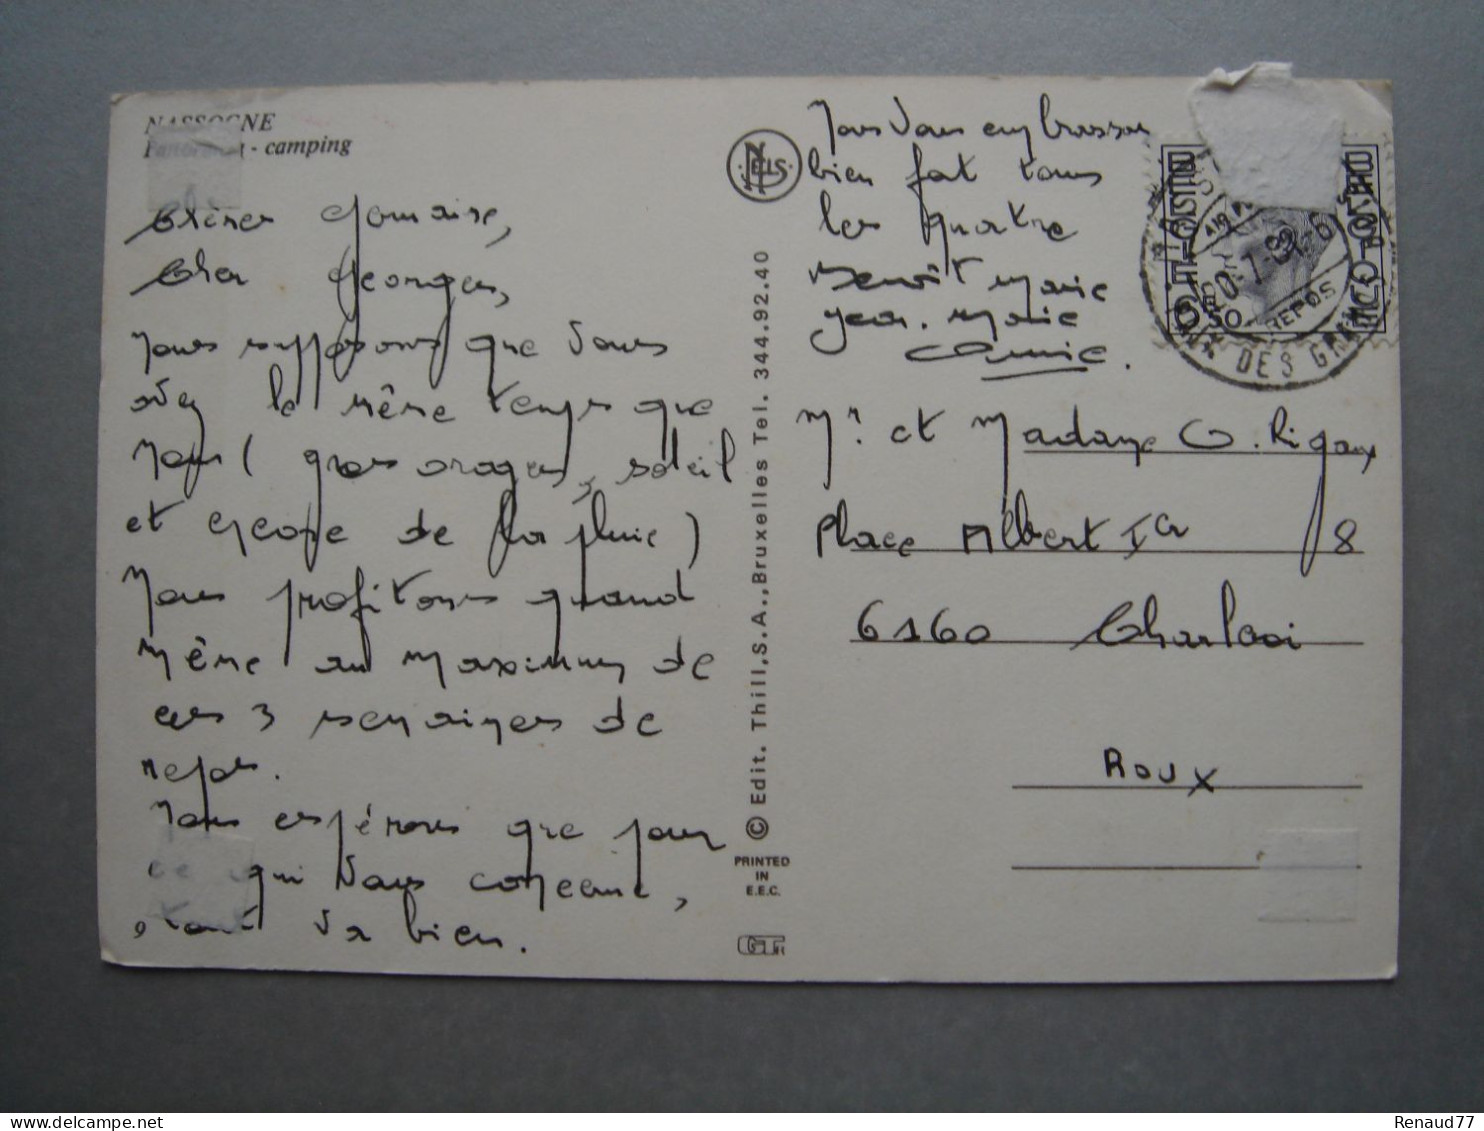 NASSOGNE
Panorama - camping
Chère Germaine,
Cher Georges,
Nous supposons que vous
avez le même temps que
nous ( gros orages, soleil
et encore de la pluie )
Nous profitons quand
même au maximum de
ces 3 semaines de
repos.
Nous espérons que pour
ce qui vous concerne,
tout va bien.
NELS
© Edit. Thill, S.A., Bruxelles Tel. 344.92.40
PRINTED
IN
E.E.C.
Nous vous embrassons
bien fort tous
les quatre
Benoît Marie
Jean-Marie
Annie.
REPOS
DES GRAN
Mr. et Madame G. Rigaux
Place Albert Ier 8
6160 Charleroi
ROUX
Renaud77